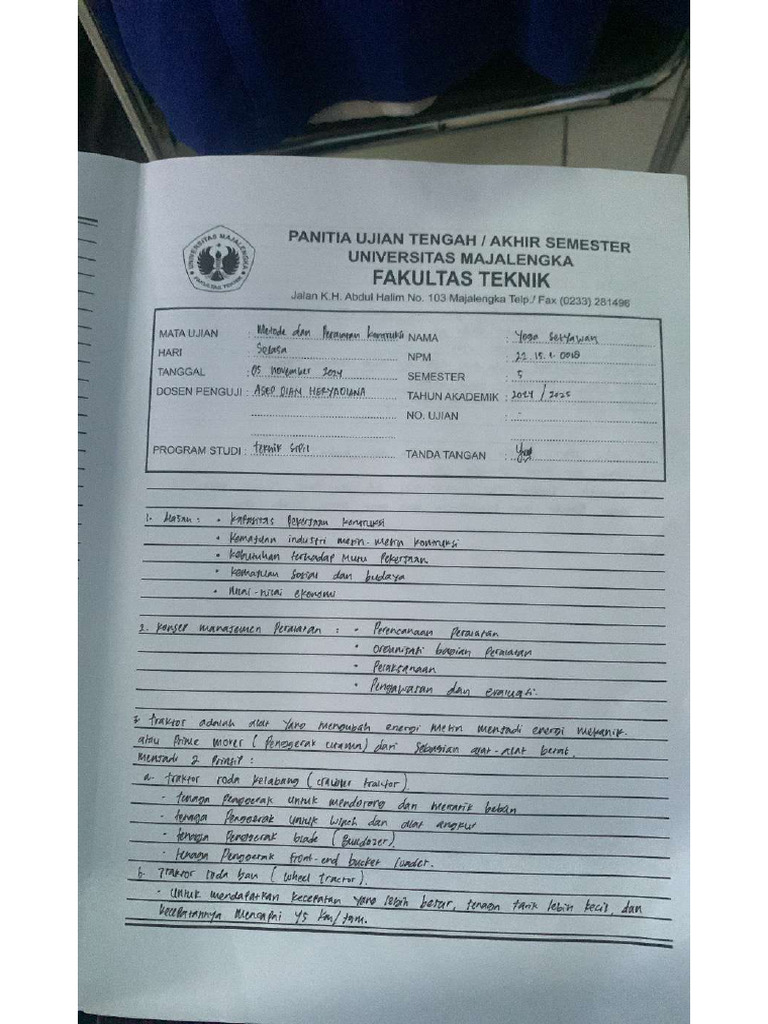 UNIVERSITAS MAJALENGKA
FAKULTAS TEKNIK
PANITIA UJIAN TENGAH / AKHIR SEMESTER
UNIVERSITAS MAJALENGKA
FAKULTAS TEKNIK
Jalan K.H. Abdul Halim No. 103 Majalengka Telp./ Fax (0233) 281496
MATA UJIAN : Metode dan Peralatan Konstruksi NAMA : Yoga Setyawan
HARI : Selasa NPM : 22.15.1.0018
TANGGAL : 05 november 2024 SEMESTER : 5
DOSEN PENGUJI : ASEP DIAN HERYADIANA TAHUN AKADEMIK : 2024 / 2025
NO. UJIAN : -
PROGRAM STUDI : teknik sipil TANDA TANGAN :
1. Alasan : • Kapasitas Pekerjaan konstruksi
• Kemajuan industri mesin-mesin konstruksi
• Kebutuhan terhadap Mutu Pekerjaan
• Kemajuan Sosial dan budaya
• Nilai-nilai ekonomi
2. Konsep manajemen Peralatan : • Perencanaan Peralatan
• Organisasi bagian Peralatan
• Pelaksanaan
• Pengawasan dan evaluasi.
3. traktor adalah alat yang mengubah energi mesin menjadi energi mekanik.
atau Prime mover ( Penggerak utama) dari Sebagian alat-alat berat.
Menjadi 2 Prinsip :
a. traktor roda kelabang ( crawler traktor)
- tenaga Penggerak untuk mendorong dan menarik beban
- tenaga Penggerak untuk winch dan alat angkut
- tenaga Penggerak blade ( Bulldozer).
- tenaga Penggerak front-end bucket loader.
b. Traktor roda ban ( wheel tractor).
- untuk mendapatkan kecepatan yang lebih besar, tenaga tarik lebih kecil, dan
kecepatannya mencapai 45 km/jam.